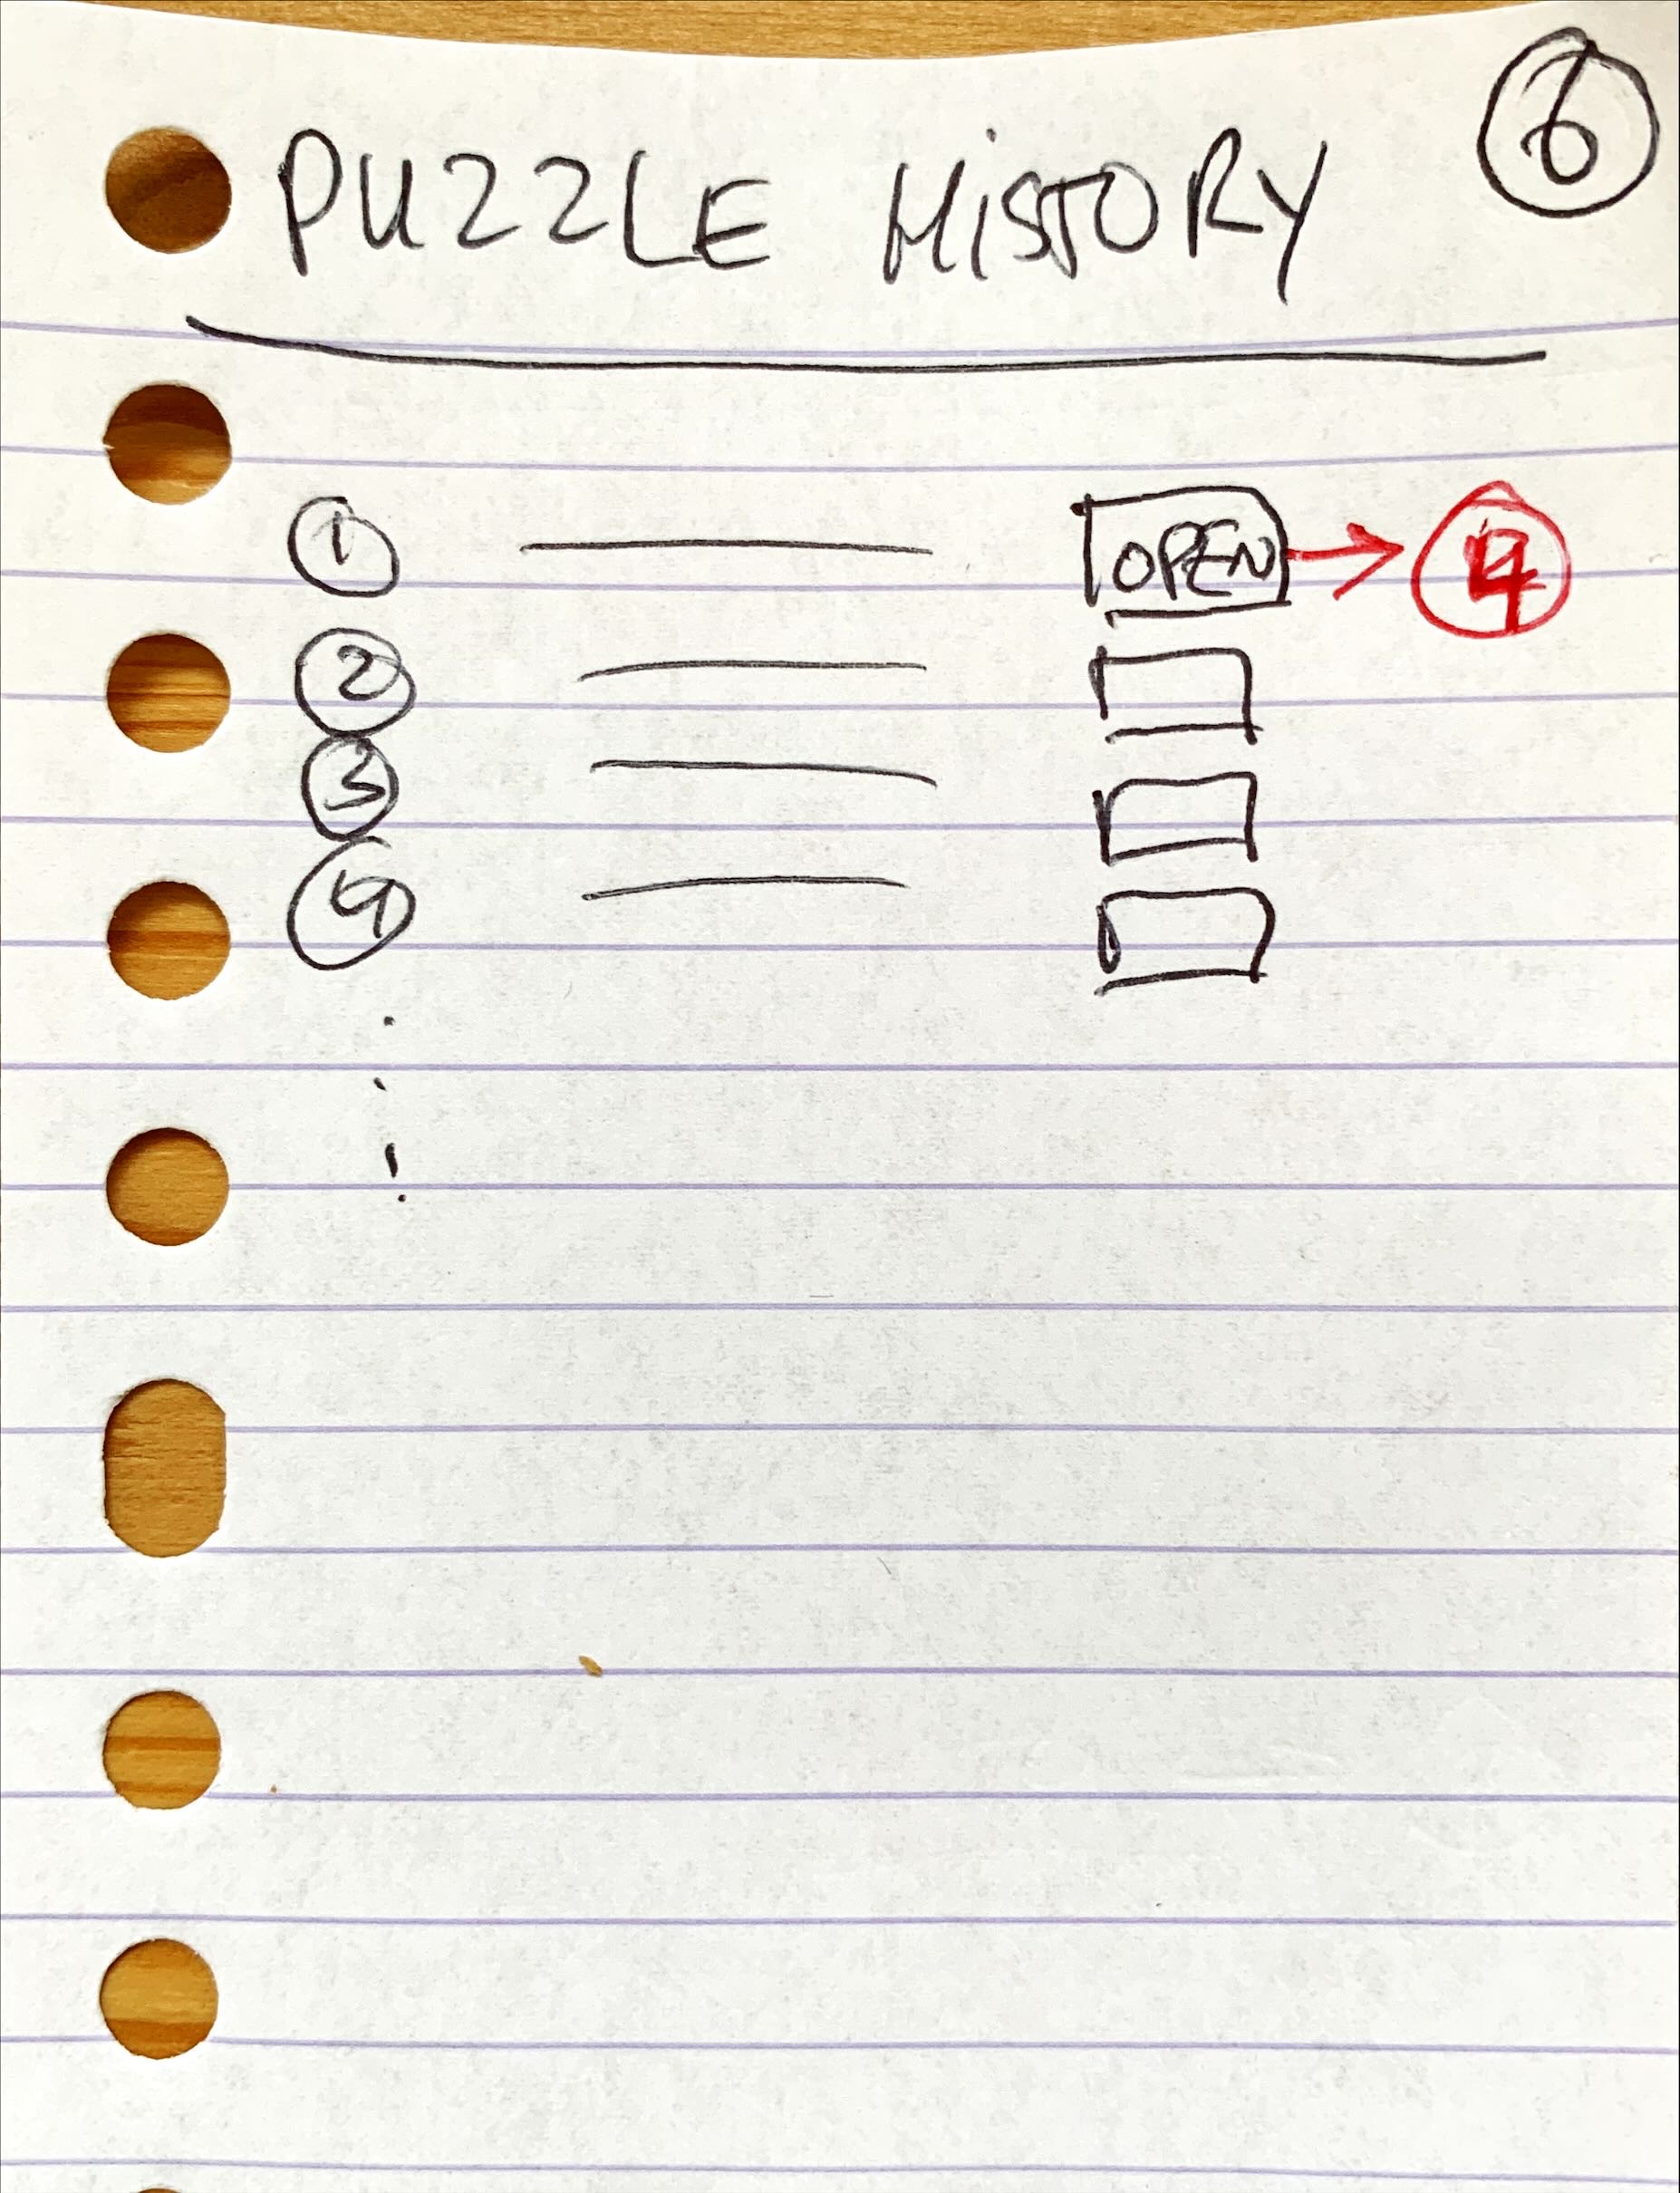 PUZZLE HISTORY 6
1 OPEN → 4
2
3
4